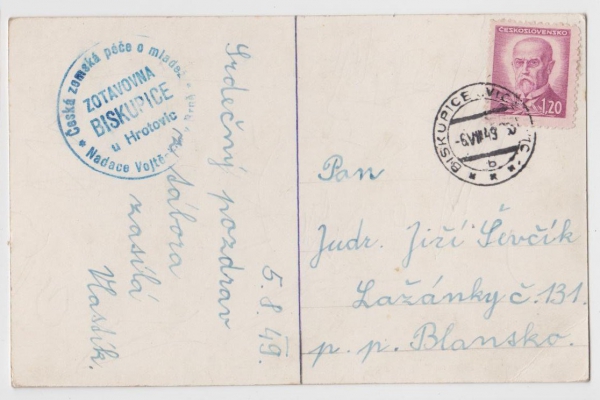 Česká zemská péče o mládež
ZOTAVOVNA
BISKUPICE
u Hrotovic
Nadace Vojtě
Srdečný pozdrav
z tábora
zasílá
Vlastík.
5. 8. 49.
ČESKOSLOVENSKO
1.20
BISKUPICE
Pan
Judr. Jiří Ševčík
Lažánky č. 131.
p. p. Blansko.